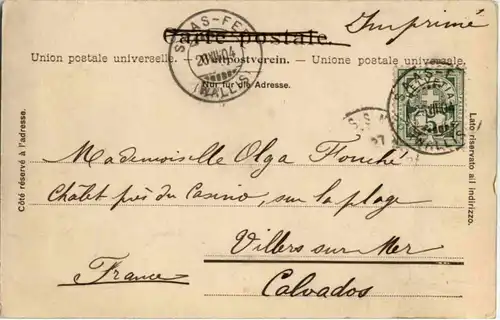 Carte postale.
Imprimé
Union postale universelle. — Weltpostverein. — Unione postale universale.
Nur für die Adresse.
SAAS-FEE
20 VII 04
(WALLIS)
SAAS-FEE
(WALLIS)
Côté réservé à l'adresse.
Lato riservato all indirizzo.
Mademoiselle Olga Fouché
Châlet près du Casino, sur la plage
Villers sur Mer
France
Calvados